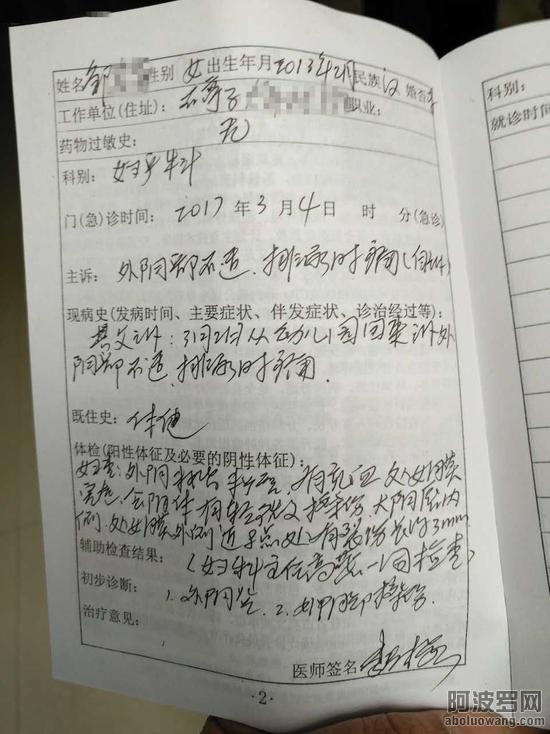 姓名 邹 性别 女 出生年月 2013年2月 民族 汉 婚否
工作单位(住址): 石 子 职业:
药物过敏史: 无
科别: 妇产科
门(急)诊时间: 2017 年 3 月 4 日 时 分(急诊)
主诉: 外阴部不适、排尿时疼痛
现病史(发病时间、主要症状、伴发症状、诊治经过等):
其父诉: 3月2日从幼儿园回来诉外
阴部不适、排尿时疼痛.
既往史: 体健
体检(阳性体征及必要的阴性体征):
妇查: 外阴 , 有充血 处女膜
完整. 会阴体有轻微 擦伤 大阴唇内
侧. 处女膜外侧近 点处有裂伤长约3mm.
辅助检查结果: (妇科主任高燕一同检查)
初步诊断: 1. 外阴炎 2. 外阴部擦伤.
治疗意见:
医师签名
·2·
科别:
就诊时间
阿波罗网
aboluowang.com